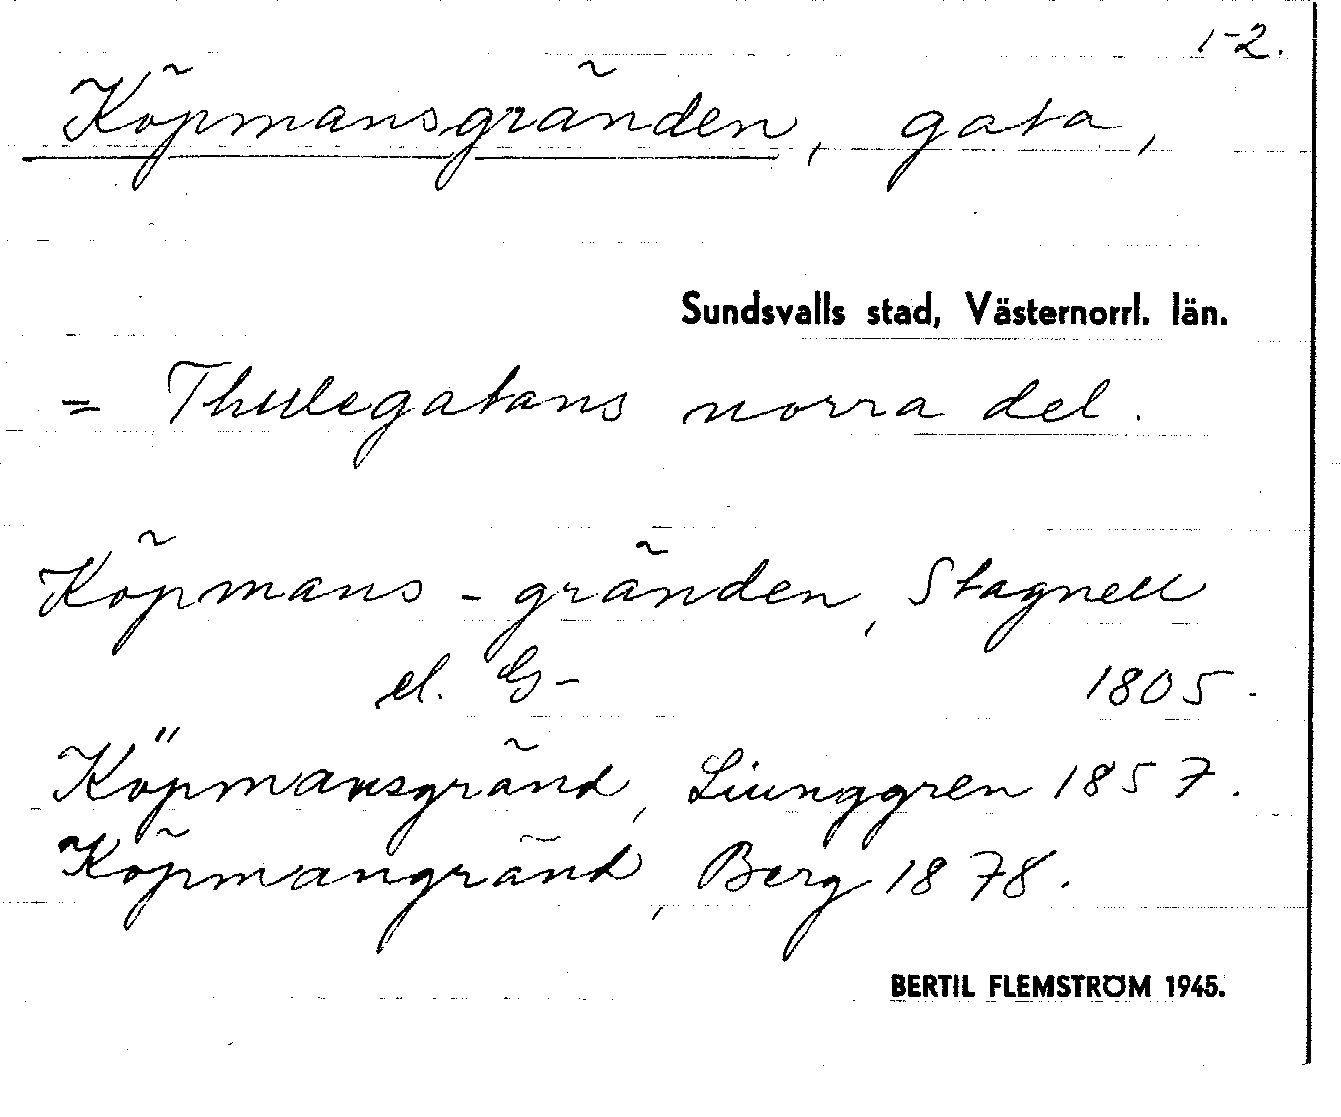 1-2.
Köpmansgränden, gata,
Sundsvalls stad, Västernorrl. län.
= Thulegatans norra del.
Köpmans - gränden, Stagnell
el. G- 1805.
Köpmansgränd, Ljunggren 1857.
Köpmangränd, Berg 1878.
BERTIL FLEMSTRÖM 1945.